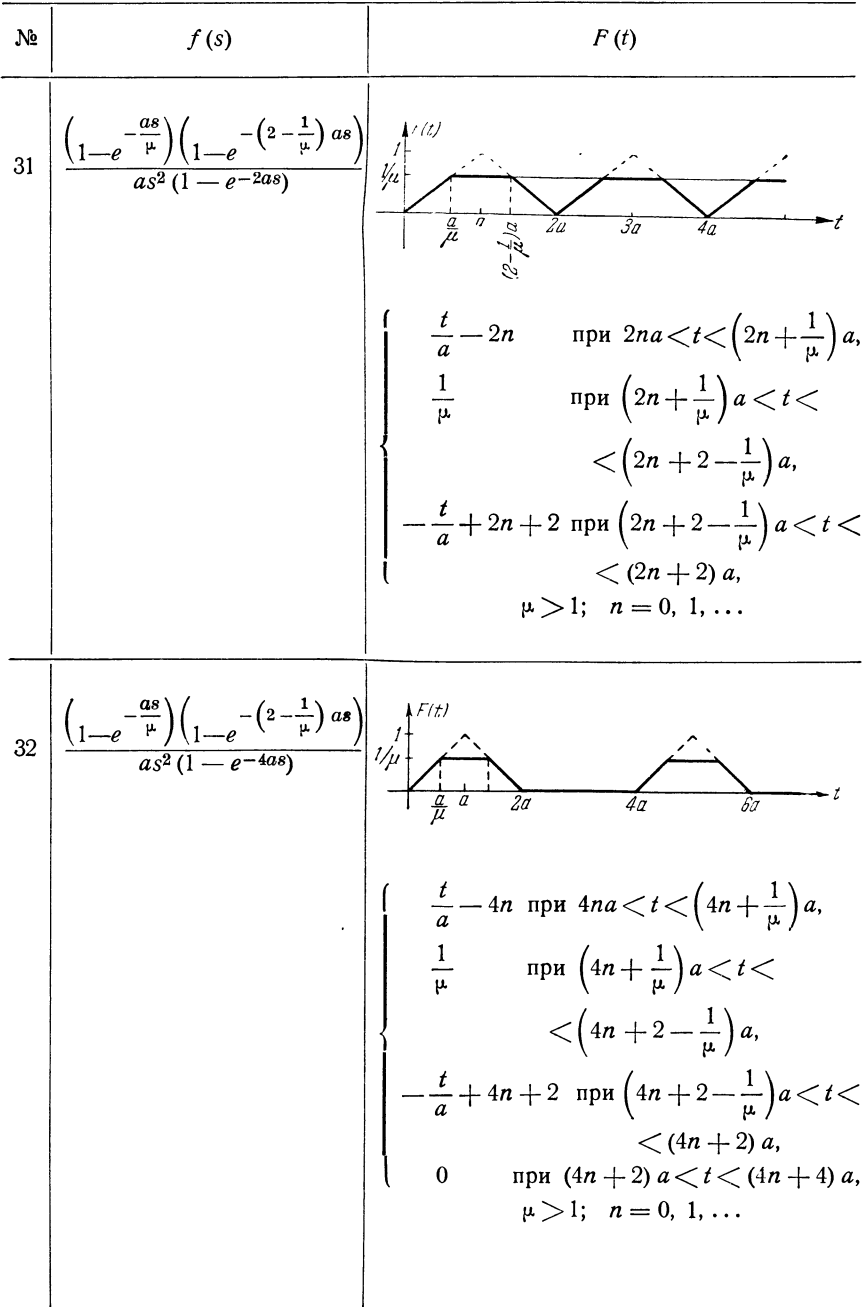 № f (s) F (t)
31
(1—e^{-as/μ})(1—e^{-(2-1/μ) as})
as² (1 — e^{-2as})
(t)
1
1/μ
a/μ a (2-1/μ)a 2a 3a 4a t
t/a — 2n при 2na < t < (2n + 1/μ) a,
1/μ при (2n + 1/μ) a < t <
< (2n + 2 — 1/μ) a,
— t/a + 2n + 2 при (2n + 2 — 1/μ) a < t <
< (2n + 2) a,
μ > 1; n = 0, 1, ...
32
(1—e^{-as/μ})(1—e^{-(2-1/μ) as})
as² (1 — e^{-4as})
F(t)
1
1/μ
a/μ a 2a 4a 6a t
t/a — 4n при 4na < t < (4n + 1/μ) a,
1/μ при (4n + 1/μ) a < t <
< (4n + 2 — 1/μ) a,
— t/a + 4n + 2 при (4n + 2 — 1/μ) a < t <
< (4n + 2) a,
0 при (4n + 2) a < t < (4n + 4) a,
μ > 1; n = 0, 1, ...